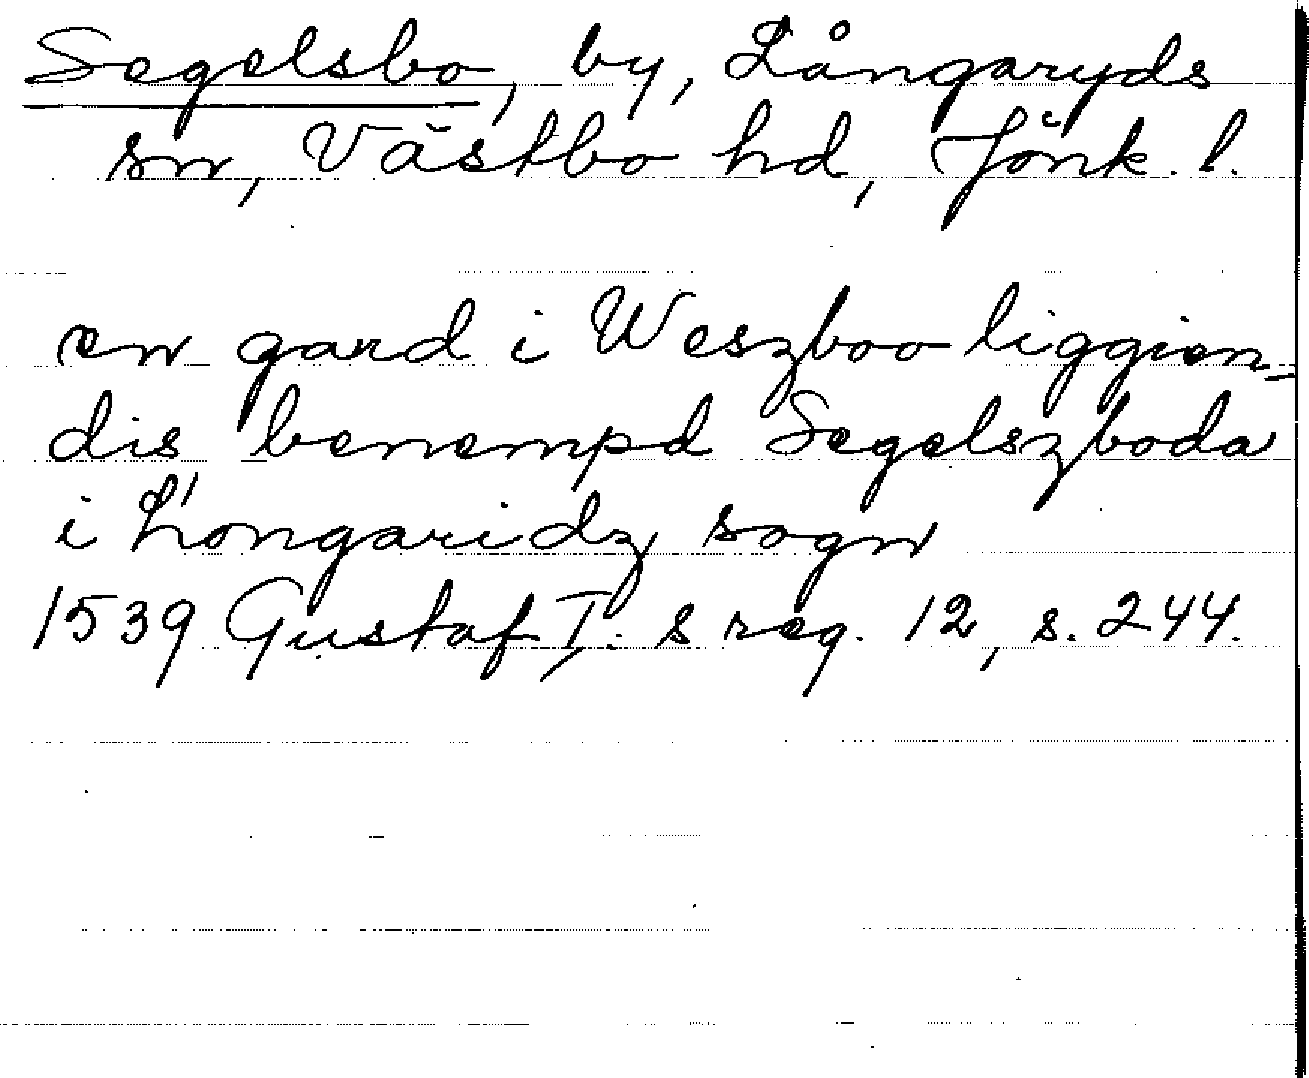 Segelsbo, by, Långaryds
sn, Västbo hd, Jönk. l.
en gard i Weszboo liggien-
dis benempd Segelszboda
i Longaridz sogn
1539 Gustaf I:s reg. 12, s. 244.